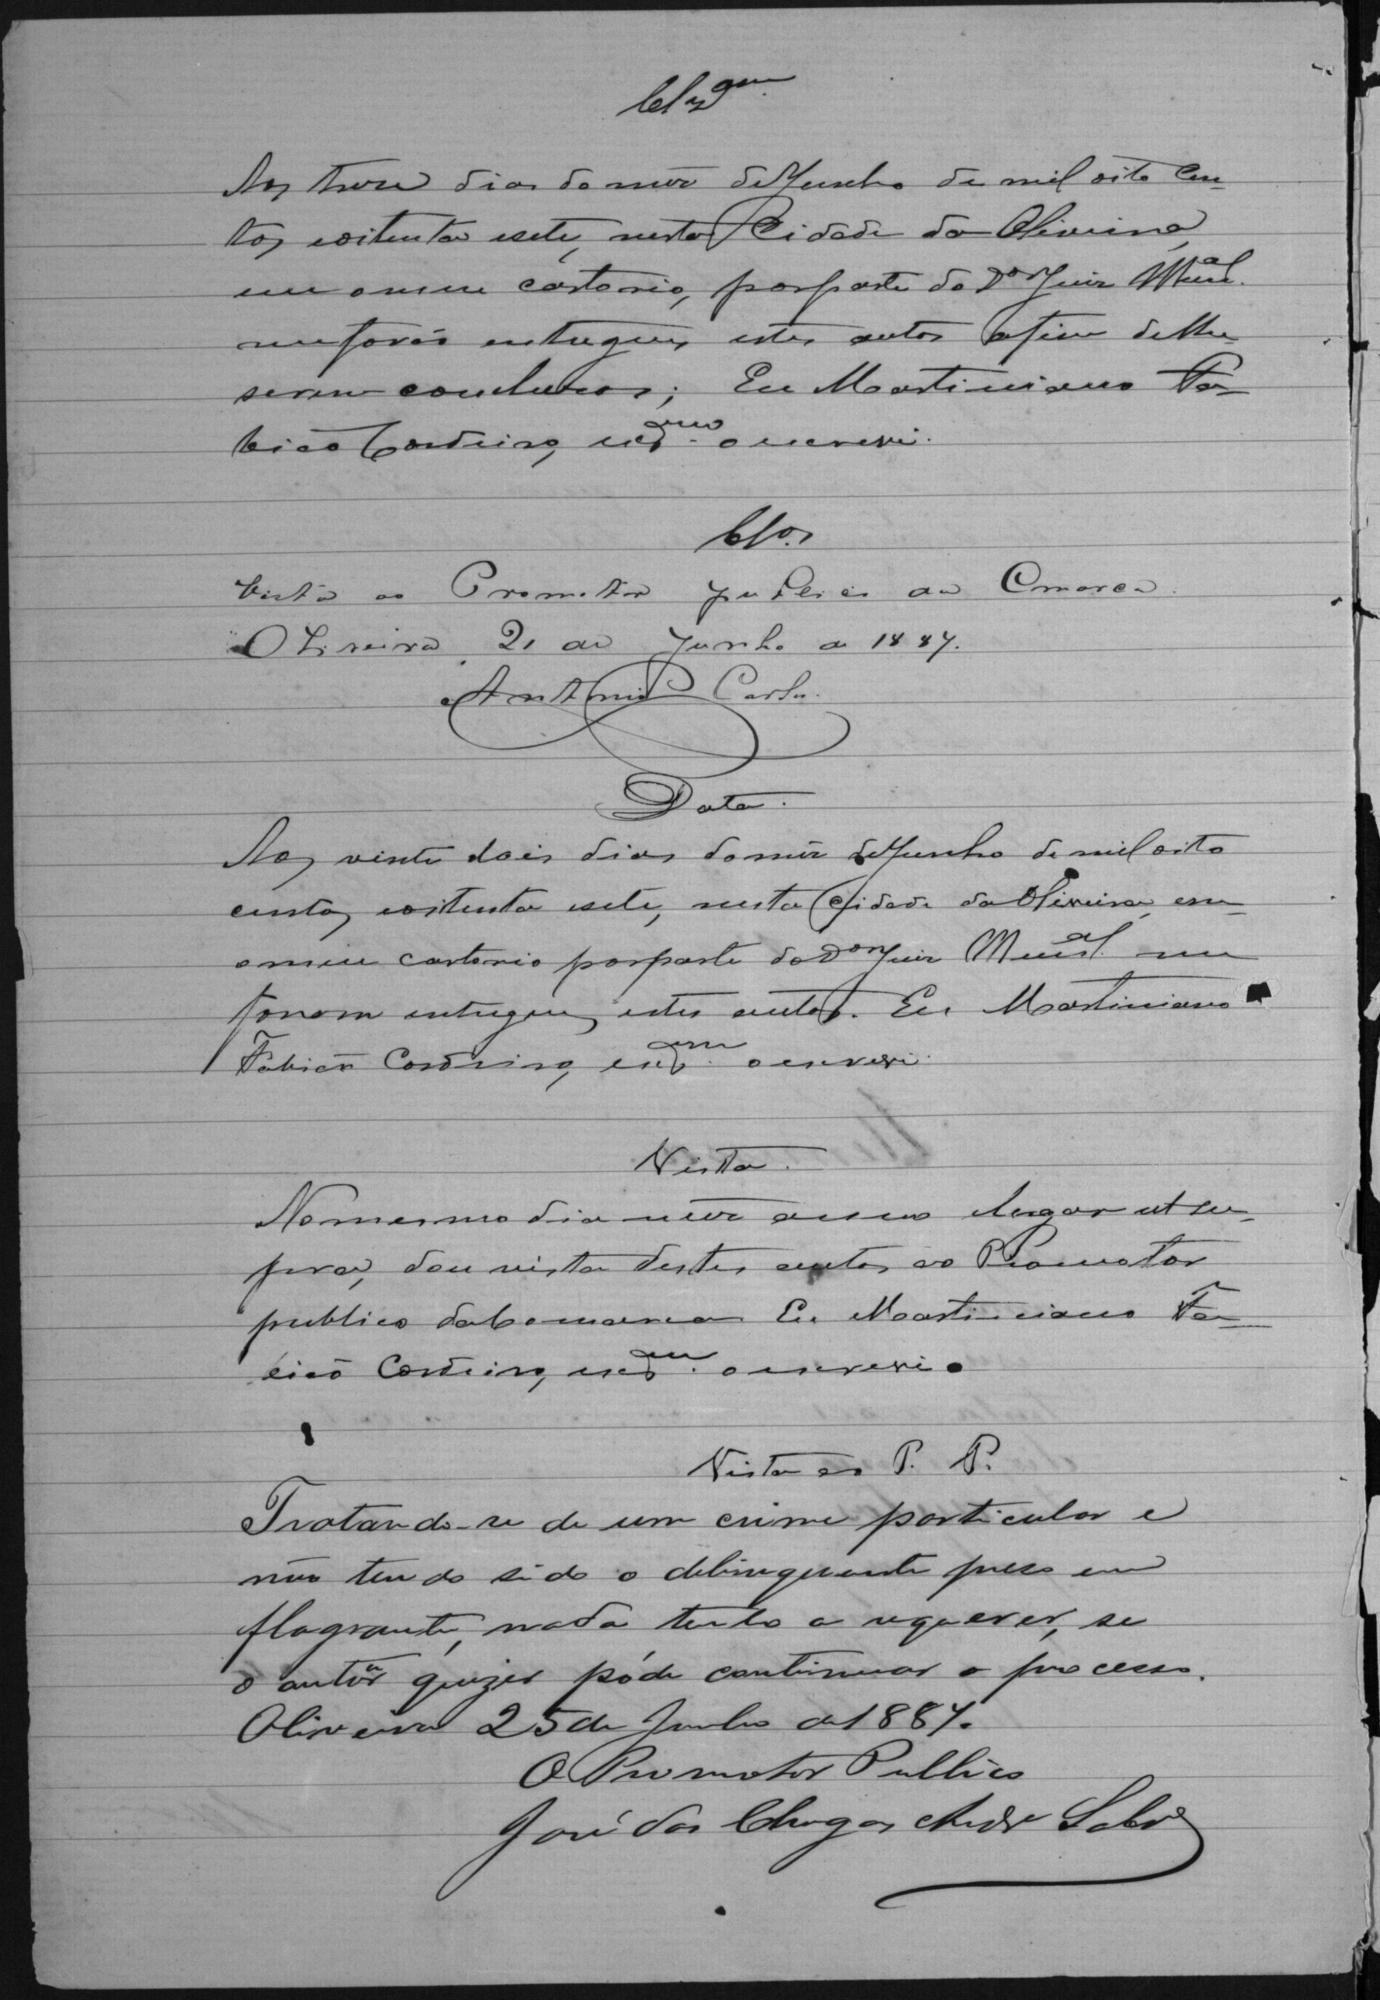 Clz am.
Aos treze dias do mez de Junho de mil oito cen-
tos e oitenta e sete, nesta Cidade da Oliveira,
em o meu cartorio, por parte do Dor Juiz Mual.
me forão entregues estes autos afim de lhe
serem conclusos; Eu Martiniano Fa-
bião Cordeiro, escram. o escrevi.
Clos.
Vista ao Promotor publico da Comarca.
Oliveira, 21 de Junho de 1887.
Antonio Carlos.
Data.
Aos vinte dois dias do mez de Junho de mil oito
centos e oitenta e sete, nesta Cidade da Oliveira, em
o meu cartorio por parte do Dor Juiz Mual. me
foram entregues estes autos. Eu Martiniano
Fabião Cordeiro, escram. o escrevi.
Vista.
No mesmo dia mez anno e lugar ut su-
pra, dou vista destes autos ao Promotor
publico da Comarca Eu Martiniano Fa-
bião Cordeiro, escram. o escrevi.
Vista ao P. P.
Tratando-se de um crime particular e
não tendo sido o delinquente preso em
flagrante, nada tenho a requerer, se
o autor quizer póde continuar o processo.
Oliveira 25 de Junho de 1887.
O Promotor Publico
José das Chagas Andre Sobro